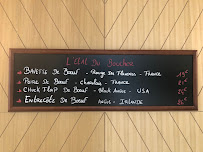 L'Œil Du Boucher
Bavette De Boeuf - Rouge Des Flandres - France 19€
Poire De Boeuf - Charolais - France
Chuck Flap De Boeuf - Black Angus - USA 24€
Entrecôte De Boeuf Angus - Irlande